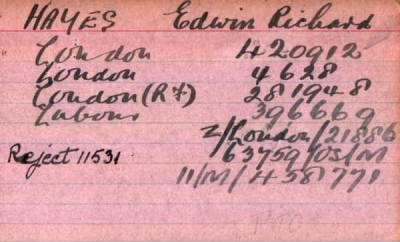 HAYES Edwin Richard
London 420912
London 4628
London (R.F.) 281948
Labour 396669
2/London/21886
Reject 11531 63759/OS/M
11/M/4581771